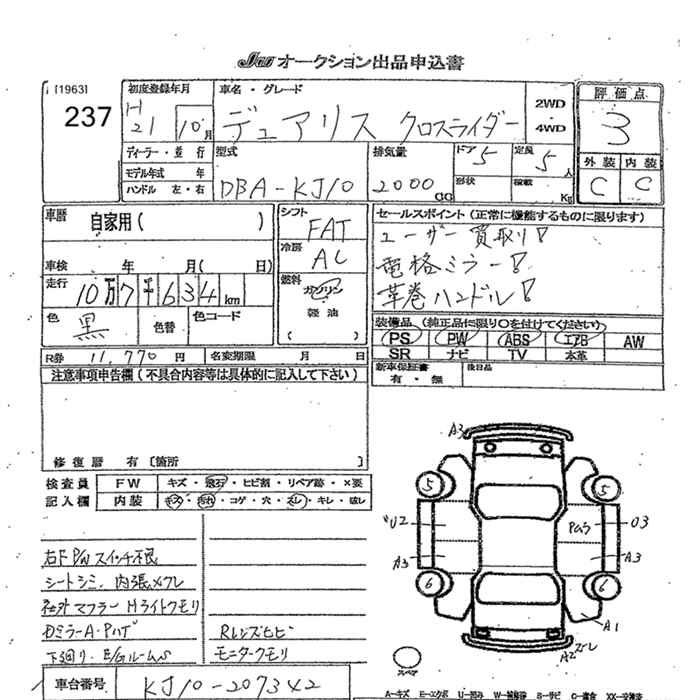 JU オークション出品申込書
[1963]
237
初度登録年月
H 21 10月
車名・グレード
デュアリス クロスライダー
2WD
4WD
評価点
3
外装 内装
C C
ディーラー・並行
モデル年式 年
ハンドル 左・右
型式
DBA-KJ10
排気量
2000
CC
ドア 5
形状
定員 5 人
積載 Kg
車歴
自家用( )
シフト
FAT
冷房
AC
燃料
ガソリン
軽油
( )
セールスポイント(正常に機能するものに限ります)
ユーザー買取り!
電格ミラー!
革巻ハンドル!
車検 年 月( 日)
走行
10万7千634km
色
黒
色替
色コード
装備品(純正品に限り○を付けてください)
PS PW ABS エアB AW
SR ナビ TV 本革
R券 11,770 円
名変期限 月 日
新車保証書
有・無
後日品
注意事項申告欄(不具合内容等は具体的に記入して下さい)
修復歴 有〔箇所 〕
検査員
記入欄
FW キズ・飛石・ヒビ割・リペア跡・×要
内装 キズ・汚れ・コゲ・穴・スレ・キレ・破レ
右F P/Wスイッチ不良
シートシミ、内張メクレ
社外マフラー Hライトクモリ
DミラーA・P
下回り、E/Gルーム
Rレンズヒビ
モニタークモリ
A3
5
5
U2
Pムラ
U3
A3
A3
6
6
A1
A2スレ
スペア
車台番号
KJ10-207342
A-キズ E-エクボ U-凹み